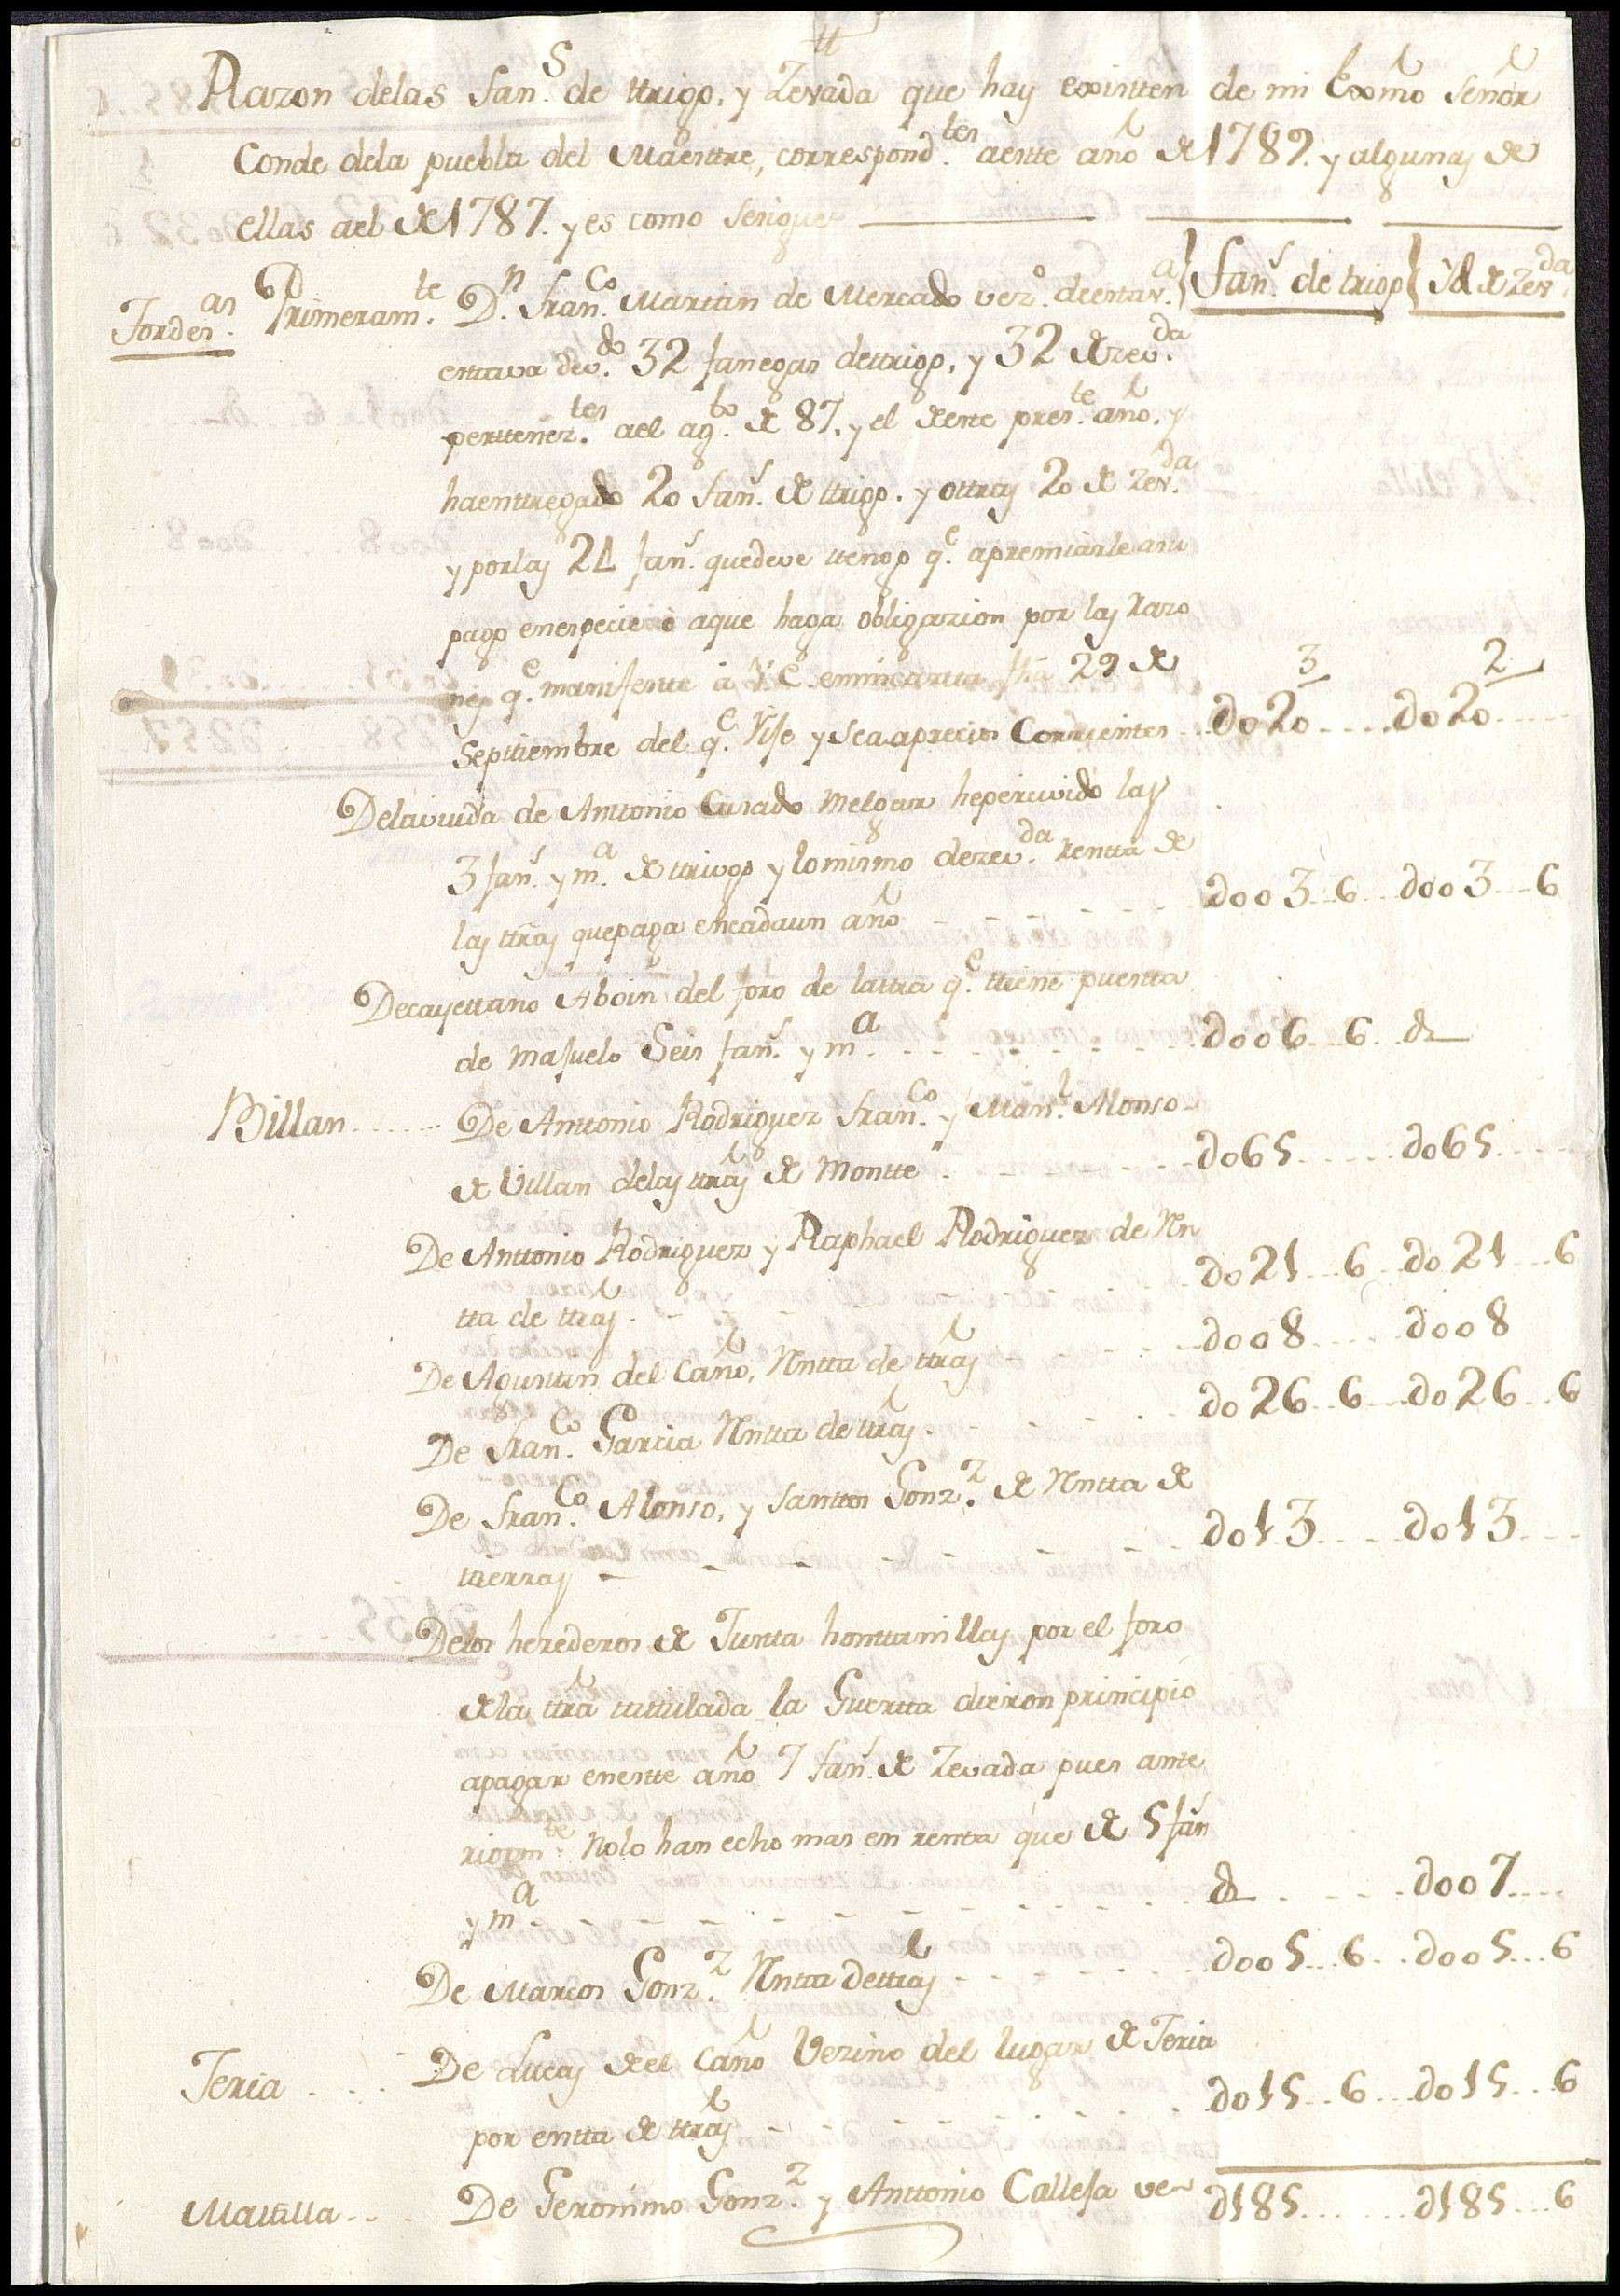 Razon delas fan.s de ttrigo, y Zevada que hay existten de mi Exmo Señor
Conde dela puebla del Maesttre, correspond.tes aeste año de 1789. y algunas de
ellas ael de 1787. y es como sesigue
Tordes.as Primeram.te D.n Fran.co Martin de Mercado vez.o deestav.a fan.s de trigo Yd de zev.da
esttava dev.do 32 fanegas dettrigo, y 32 de zev.da
perttenez.tes ael ag.to de 87. y el de este pres.te año. y
haenttregado 20 fan.s de ttrigo. y ottras 20 de zev.da
y porlas 24 fan.s quedeve ttengo q.e apremiarle asu
pago enespecie ò aque haga obligazion por las Razo
nes q.e manifestte â V.E. enmicartta fha 29 de 3 2
Septtiembre del q.e Rije y sea aprecios Corrientes do20 do20
Delaviuda de Anttonio Casado Melgar hepercivido las
3 fan.s y m.a de ttrigo y lomismo dezev.da Rentta de
las ttras quepaga encadaun año doo3 6 doo3 6
Decayettano Aboin del foro de lattra q.e ttiene puestta
de majuelo Seis fan.s y m.a doo6 6 d
Billan De Anttonio Rodriguez Fran.co y Man.l Alonso
de Villan delas ttras de Montte do65 do65
De Anttonio Rodriguez y Raphael Rodriguez de Rn
tta de ttras do21 6 do21 6
De Agusttin del Caño, Rntta de ttras doo8 doo8
De Fran.co Garcia Rntta de ttras do26 6 do26 6
De Fran.co Alonso, y Santtos Gonz.z de Rntta de
ttierras do13 do13
Delos herederos de Justta honttanillas por el foro
de la ttra tittulada la Guertta dieron principio
apagar enestte año 7 fan.s de Zevada pues ante
riorm.te Nolo han echo mas en rentta que de 5 fan.s
y m.a d doo7
De Marcos Gonz.z Rntta dettras doo5 6 doo5 6
Teria De Lucas de el Caño Vezino del lugar de Teria
por entta de ttras do15 6 do15 6
Matilla De Geronimo Gonz.z y Anttonio Calleja ve d185 d185 6